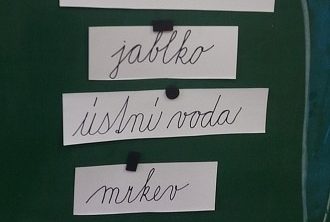 jablko
ústní voda
mrkev